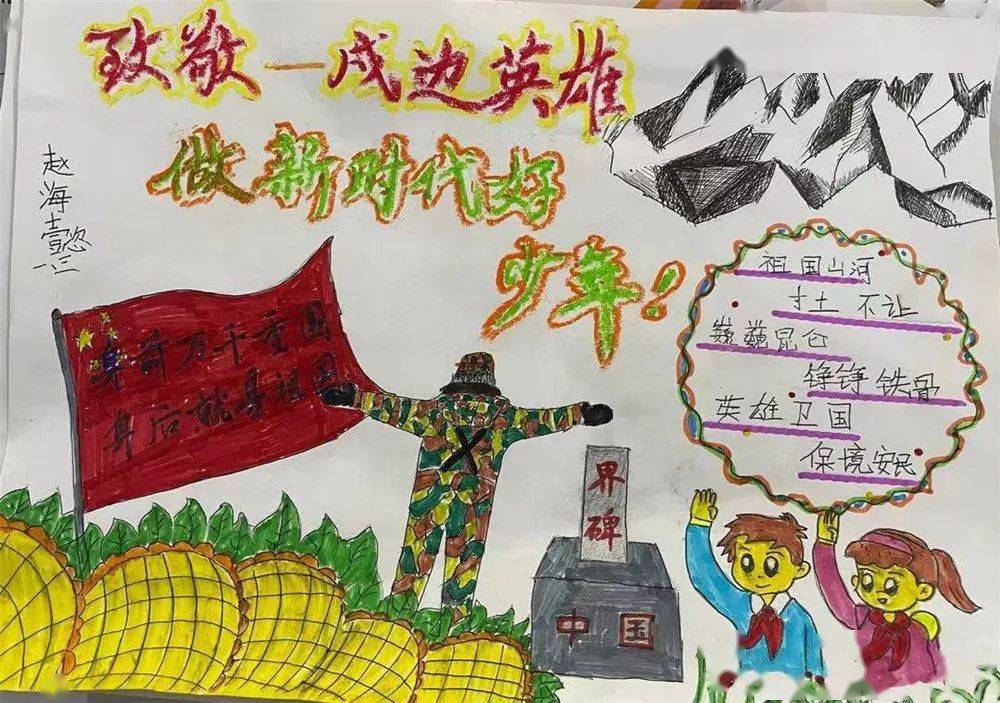 致敬—戍边英雄
做新时代好
少年！
赵海壹
身前万千重
身后就是祖国
祖国山河
寸土不让
巍巍昆仑
铮铮铁骨
英雄卫国
保境安民
界碑
中国